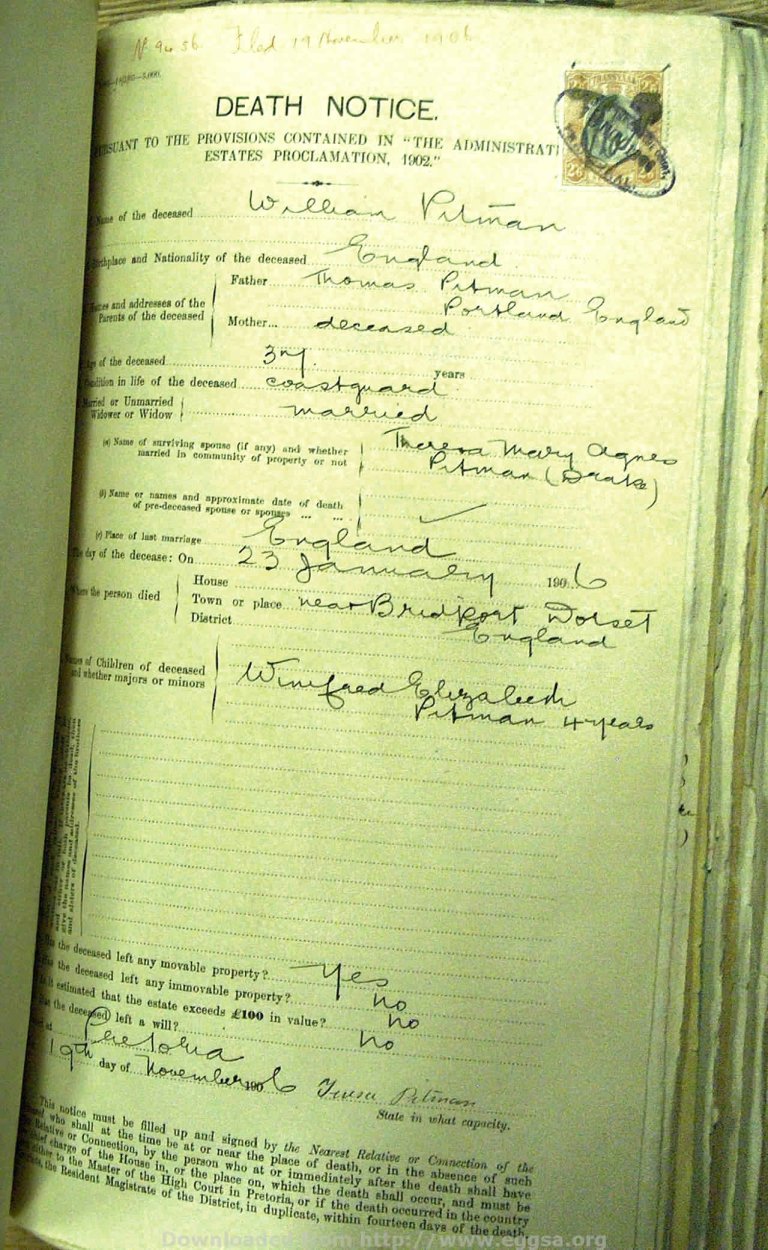 Filed 19 November 1906
DEATH NOTICE.
PURSUANT TO THE PROVISIONS CONTAINED IN "THE ADMINISTRATI
ESTATES PROCLAMATION, 1902."
TRANSVAAL
Name of the deceased William Pitman
Birthplace and Nationality of the deceased England
Names and addresses of the Parents of the deceased
Father Thomas Pitman
Portland England
Mother... deceased
Age of the deceased years
Condition in life of the deceased coastguard
Married or Unmarried
Widower or Widow married
(a) Name of surviving spouse (if any) and whether Theresa Mary Agnes
married in community of property or not Pitman (Drake)
(b) Name or names and approximate date of death
of pre-deceased spouse or spouses ... ...
(c) Place of last marriage England
The day of the decease: On 23 January 1906
Where the person died
House
Town or place near Bridport Dorset
District England
Names of Children of deceased
and whether majors or minors Winifred Elizabeth
Pitman 4 years
give the names and addresses of the brothers
and sisters of deceased.
Has the deceased left any movable property? Yes
Has the deceased left any immovable property? no
Is it estimated that the estate exceeds £100 in value? no
Has the deceased left a will? no
at Pretoria
19th day of November 1906 Teresa Pitman
State in what capacity.
This notice must be filled up and signed by the Nearest Relative or Connection of the
who shall at the time be at or near the place of death, or in the absence of such
Relative or Connection, by the person who at or immediately after the death shall have
chief charge of the House in, or the place on, which the death shall occur, and must be
either to the Master of the High Court in Pretoria, or if the death occurred in the country
the Resident Magistrate of the District, in duplicate, within fourteen days of the death.
Downloaded from http://www.eggsa.org